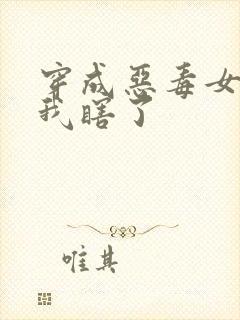 穿成惡毒女
我瞎了
唯其